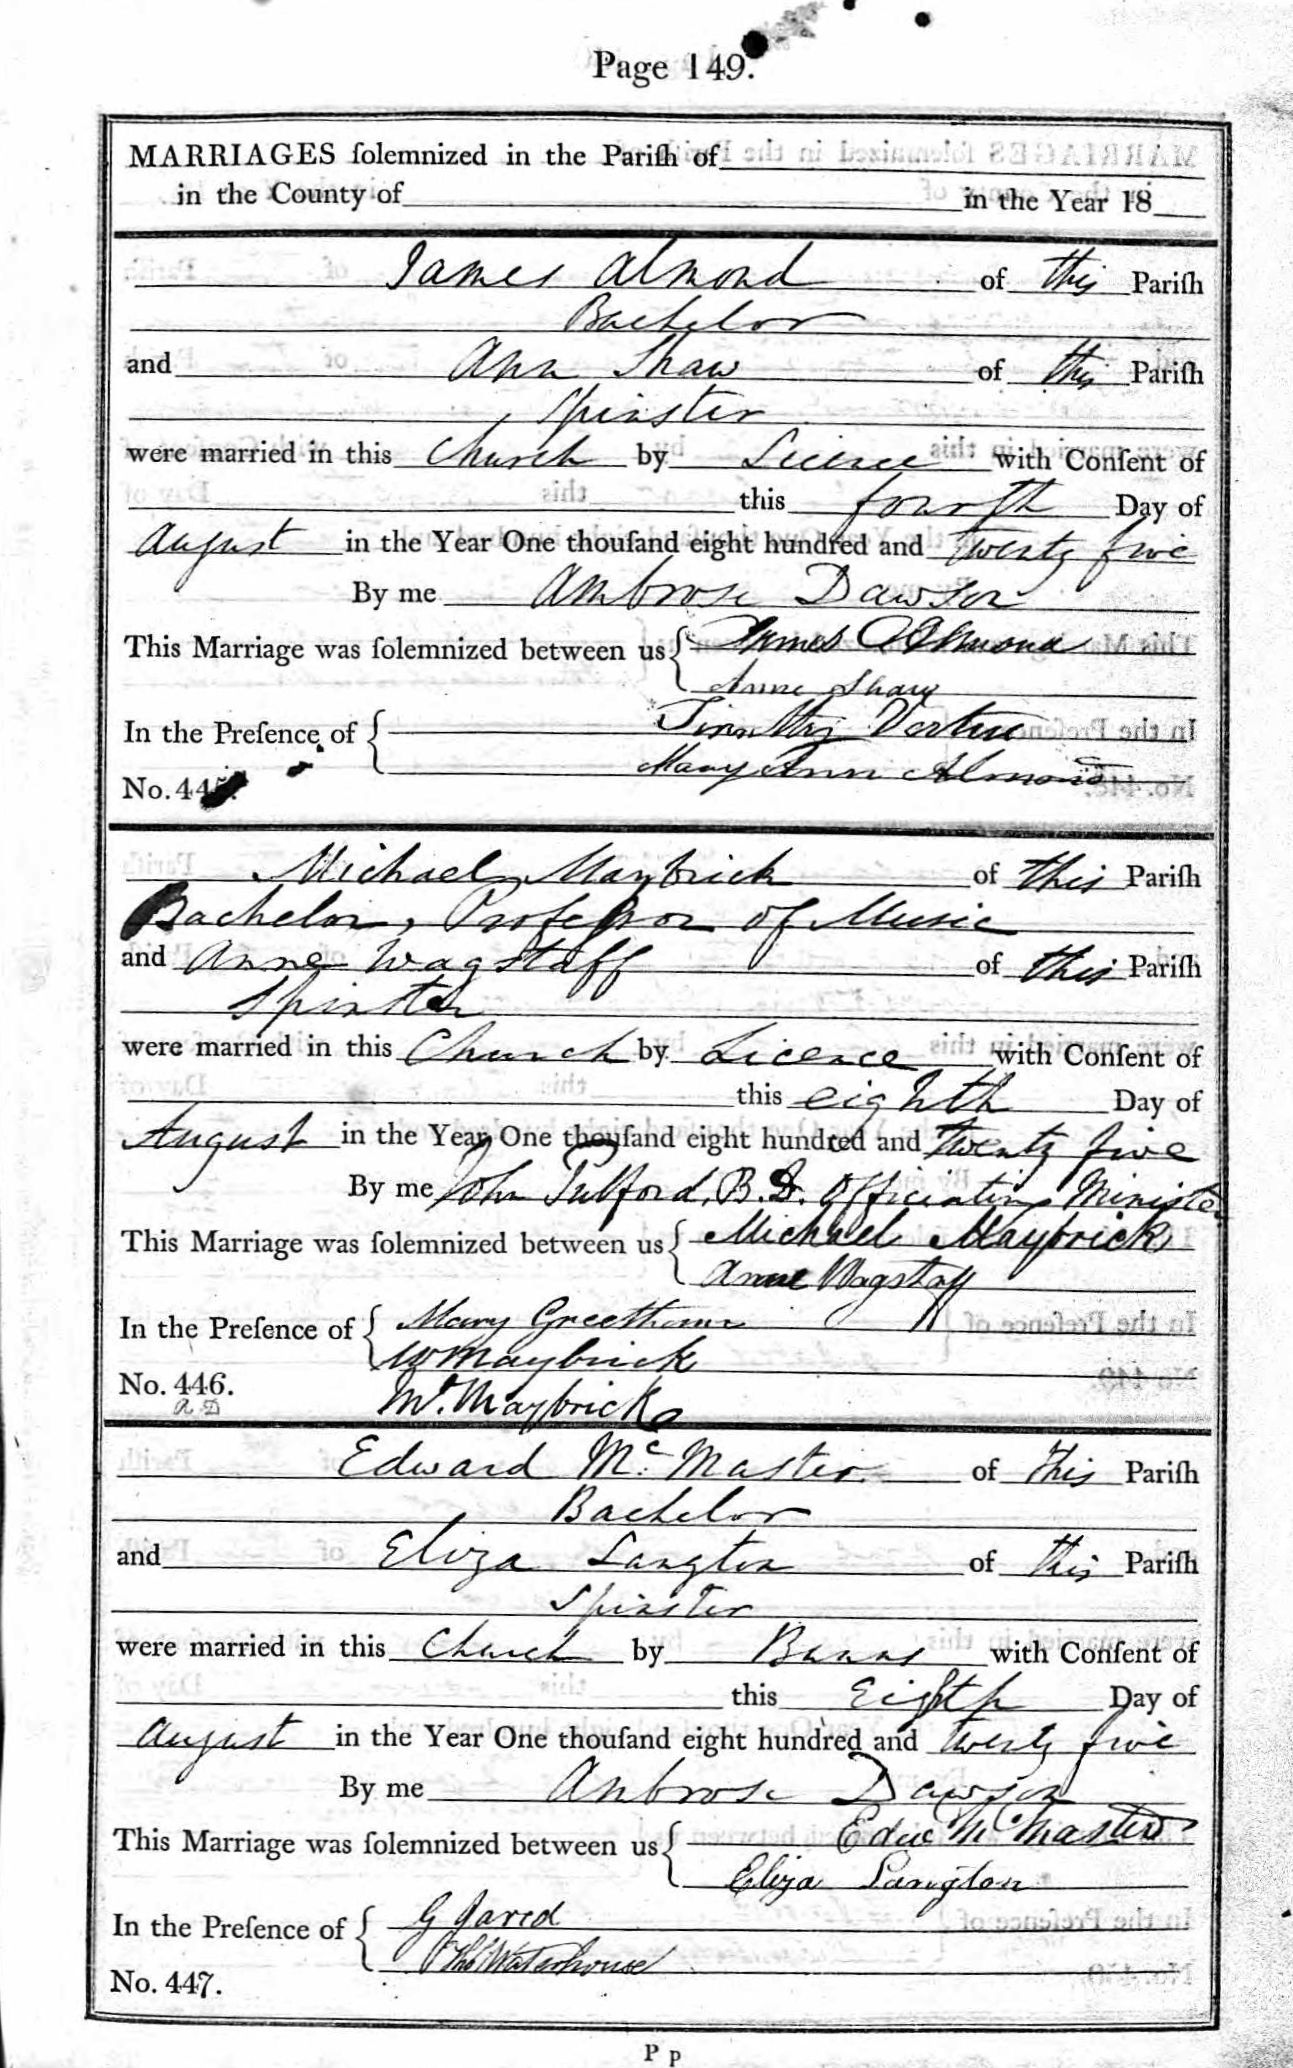 Page 149.
MARRIAGES ſolemnized in the Pariſh of
in the County of in the Year 18
James Almond of this Pariſh
Bachelor
and Ann Shaw of this Pariſh
Spinster
were married in this Church by Licence with Conſent of
this fourth Day of
August in the Year One thouſand eight hundred and twenty five
By me Ambrose Dawson
This Marriage was ſolemnized between us James Almond
Anne Shaw
In the Preſence of Timothy Vertue
Mary Ann Almond
No. 445.
Michael Maybrick of this Pariſh
Bachelor, Profeſsor of Music
and Anne Wagstaff of this Pariſh
Spinster
were married in this Church by Licence with Conſent of
this eighth Day of
August in the Year One thouſand eight hundred and twenty five
By me John Pulford, B.D. Officiating Minister
This Marriage was ſolemnized between us Michael Maybrick
Anne Wagstaff
In the Preſence of Mary Greetham
W Maybrick
No. 446.
A D
Mr. Maybrick
Edward Mc. Master of this Pariſh
Bachelor
and Eliza Langton of this Pariſh
Spinster
were married in this Church by Banns with Conſent of
this Eighth Day of
August in the Year One thouſand eight hundred and twenty five
By me Ambrose Dawson
This Marriage was ſolemnized between us Edw Mc Master
Eliza Langton
In the Preſence of G Jared
Thos Waterhouse
No. 447.
P p